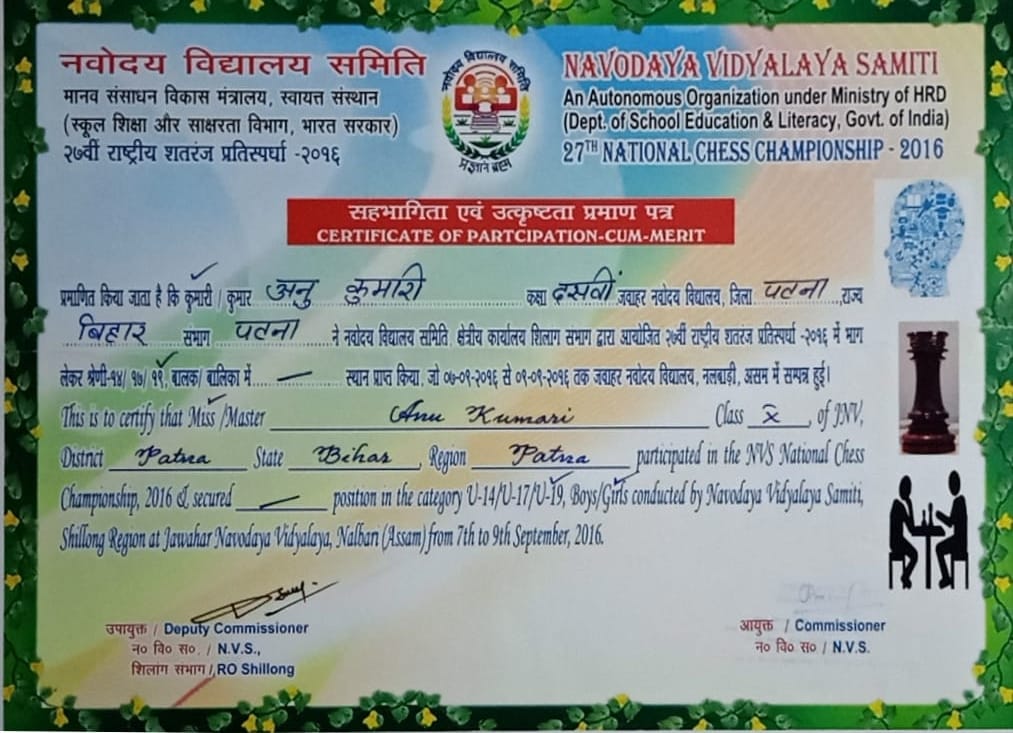 नवोदय विद्यालय समिति
मानव संसाधन विकास मंत्रालय, स्वायत्त संस्थान
(स्कूल शिक्षा और साक्षरता विभाग, भारत सरकार)
२७वीं राष्ट्रीय शतरंज प्रतिस्पर्धा -२०१६
नवोदय विद्यालय समिति
प्रज्ञानं ब्रह्म
NAVODAYA VIDYALAYA SAMITI
An Autonomous Organization under Ministry of HRD
(Dept. of School Education & Literacy, Govt. of India)
27TH NATIONAL CHESS CHAMPIONSHIP - 2016
सहभागिता एवं उत्कृष्टता प्रमाण पत्र
CERTIFICATE OF PARTCIPATION-CUM-MERIT
प्रमाणित किया जाता है कि कुमारी / कुमार अनु कुमारी कक्षा दसवीं जवाहर नवोदय विद्यालय, जिला पटना, राज्य
बिहार संभाग पटना ने नवोदय विद्यालय समिति, क्षेत्रीय कार्यालय शिलाग संभाग द्वारा आयोजित २७वीं राष्ट्रीय शतरंज प्रतिस्पर्धा -२०१६ में भाग
लेकर श्रेणी-१४/ १७/ १९, बालक/ बालिका में — स्थान प्राप्त किया, जो ०७-०९-२०१६ से ०९-०९-२०१६ तक जवाहर नवोदय विद्यालय, नलबाड़ी, असम में सम्पन्न हुई।
This is to certify that Miss /Master Anu Kumari Class X, of JNV,
District Patna State Bihar, Region Patna participated in the NVS National Chess
Championship, 2016 & secured — position in the category U-14/U-17/U-19, Boys/Girls conducted by Navodaya Vidyalaya Samiti,
Shillong Region at Jawahar Navodaya Vidyalaya, Nalbari (Assam) from 7th to 9th September, 2016.
उपायुक्त / Deputy Commissioner
न० वि० स०. / N.V.S.,
शिलांग संभाग / RO Shillong
आयुक्त / Commissioner
न० वि० स० / N.V.S.